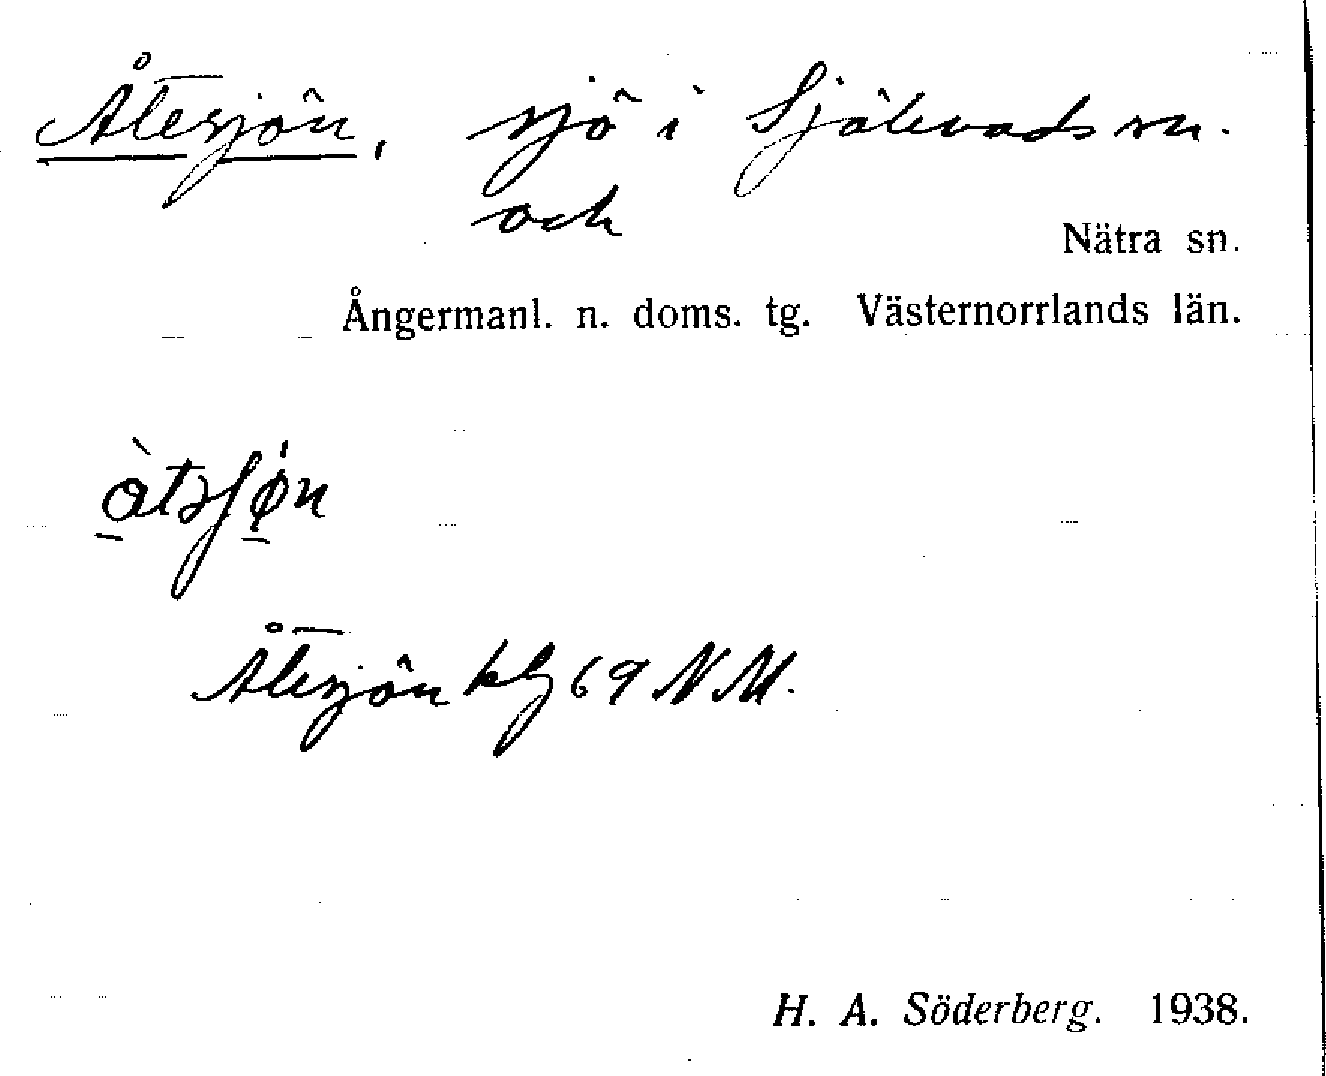 Åtesjön, sjö i Själevads sn.
och
Nätra sn.
Ångermanl. n. doms. tg. Västernorrlands län.
Åtesjön 69 NM.
H. A. Söderberg. 1938.